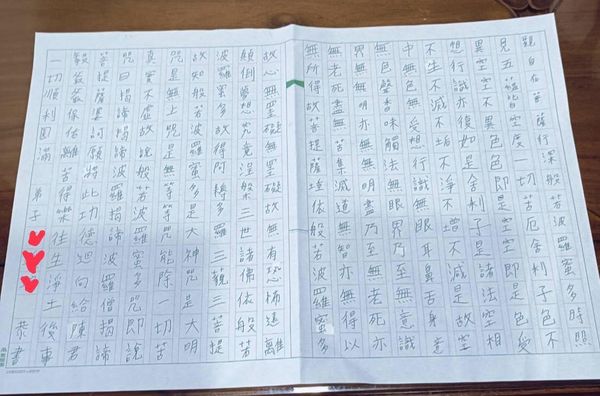 觀自在菩薩行深般若波羅蜜多時照
見五蘊皆空度一切苦厄舍利子色不
異空空不異色色即是空空即是色受
想行識亦復如是舍利子是諸法空相
不生不滅不垢不淨不增不減是故空
中無色無受想行識無眼耳鼻舌身意
無色聲香味觸法無眼界乃至無意識
界無無明亦無無明盡乃至無老死亦
無老死盡無苦集滅道無智亦無得以
無所得故菩提薩埵依般若波羅蜜多
故心無罣礙無罣礙故無有恐怖遠離
顛倒夢想究竟涅槃三世諸佛依般若
波羅蜜多故得阿耨多羅三藐三菩提
故知般若波羅蜜多是大神咒是大明
咒是無上咒是無等等咒能除一切苦
真實不虛故說般若波羅蜜多咒即說
咒曰揭諦揭諦波羅揭諦波羅僧揭諦
菩提薩婆訶願將此功德迴向給陳君
毅離苦得樂往生淨土後事
一切順利圓滿 弟子 恭書